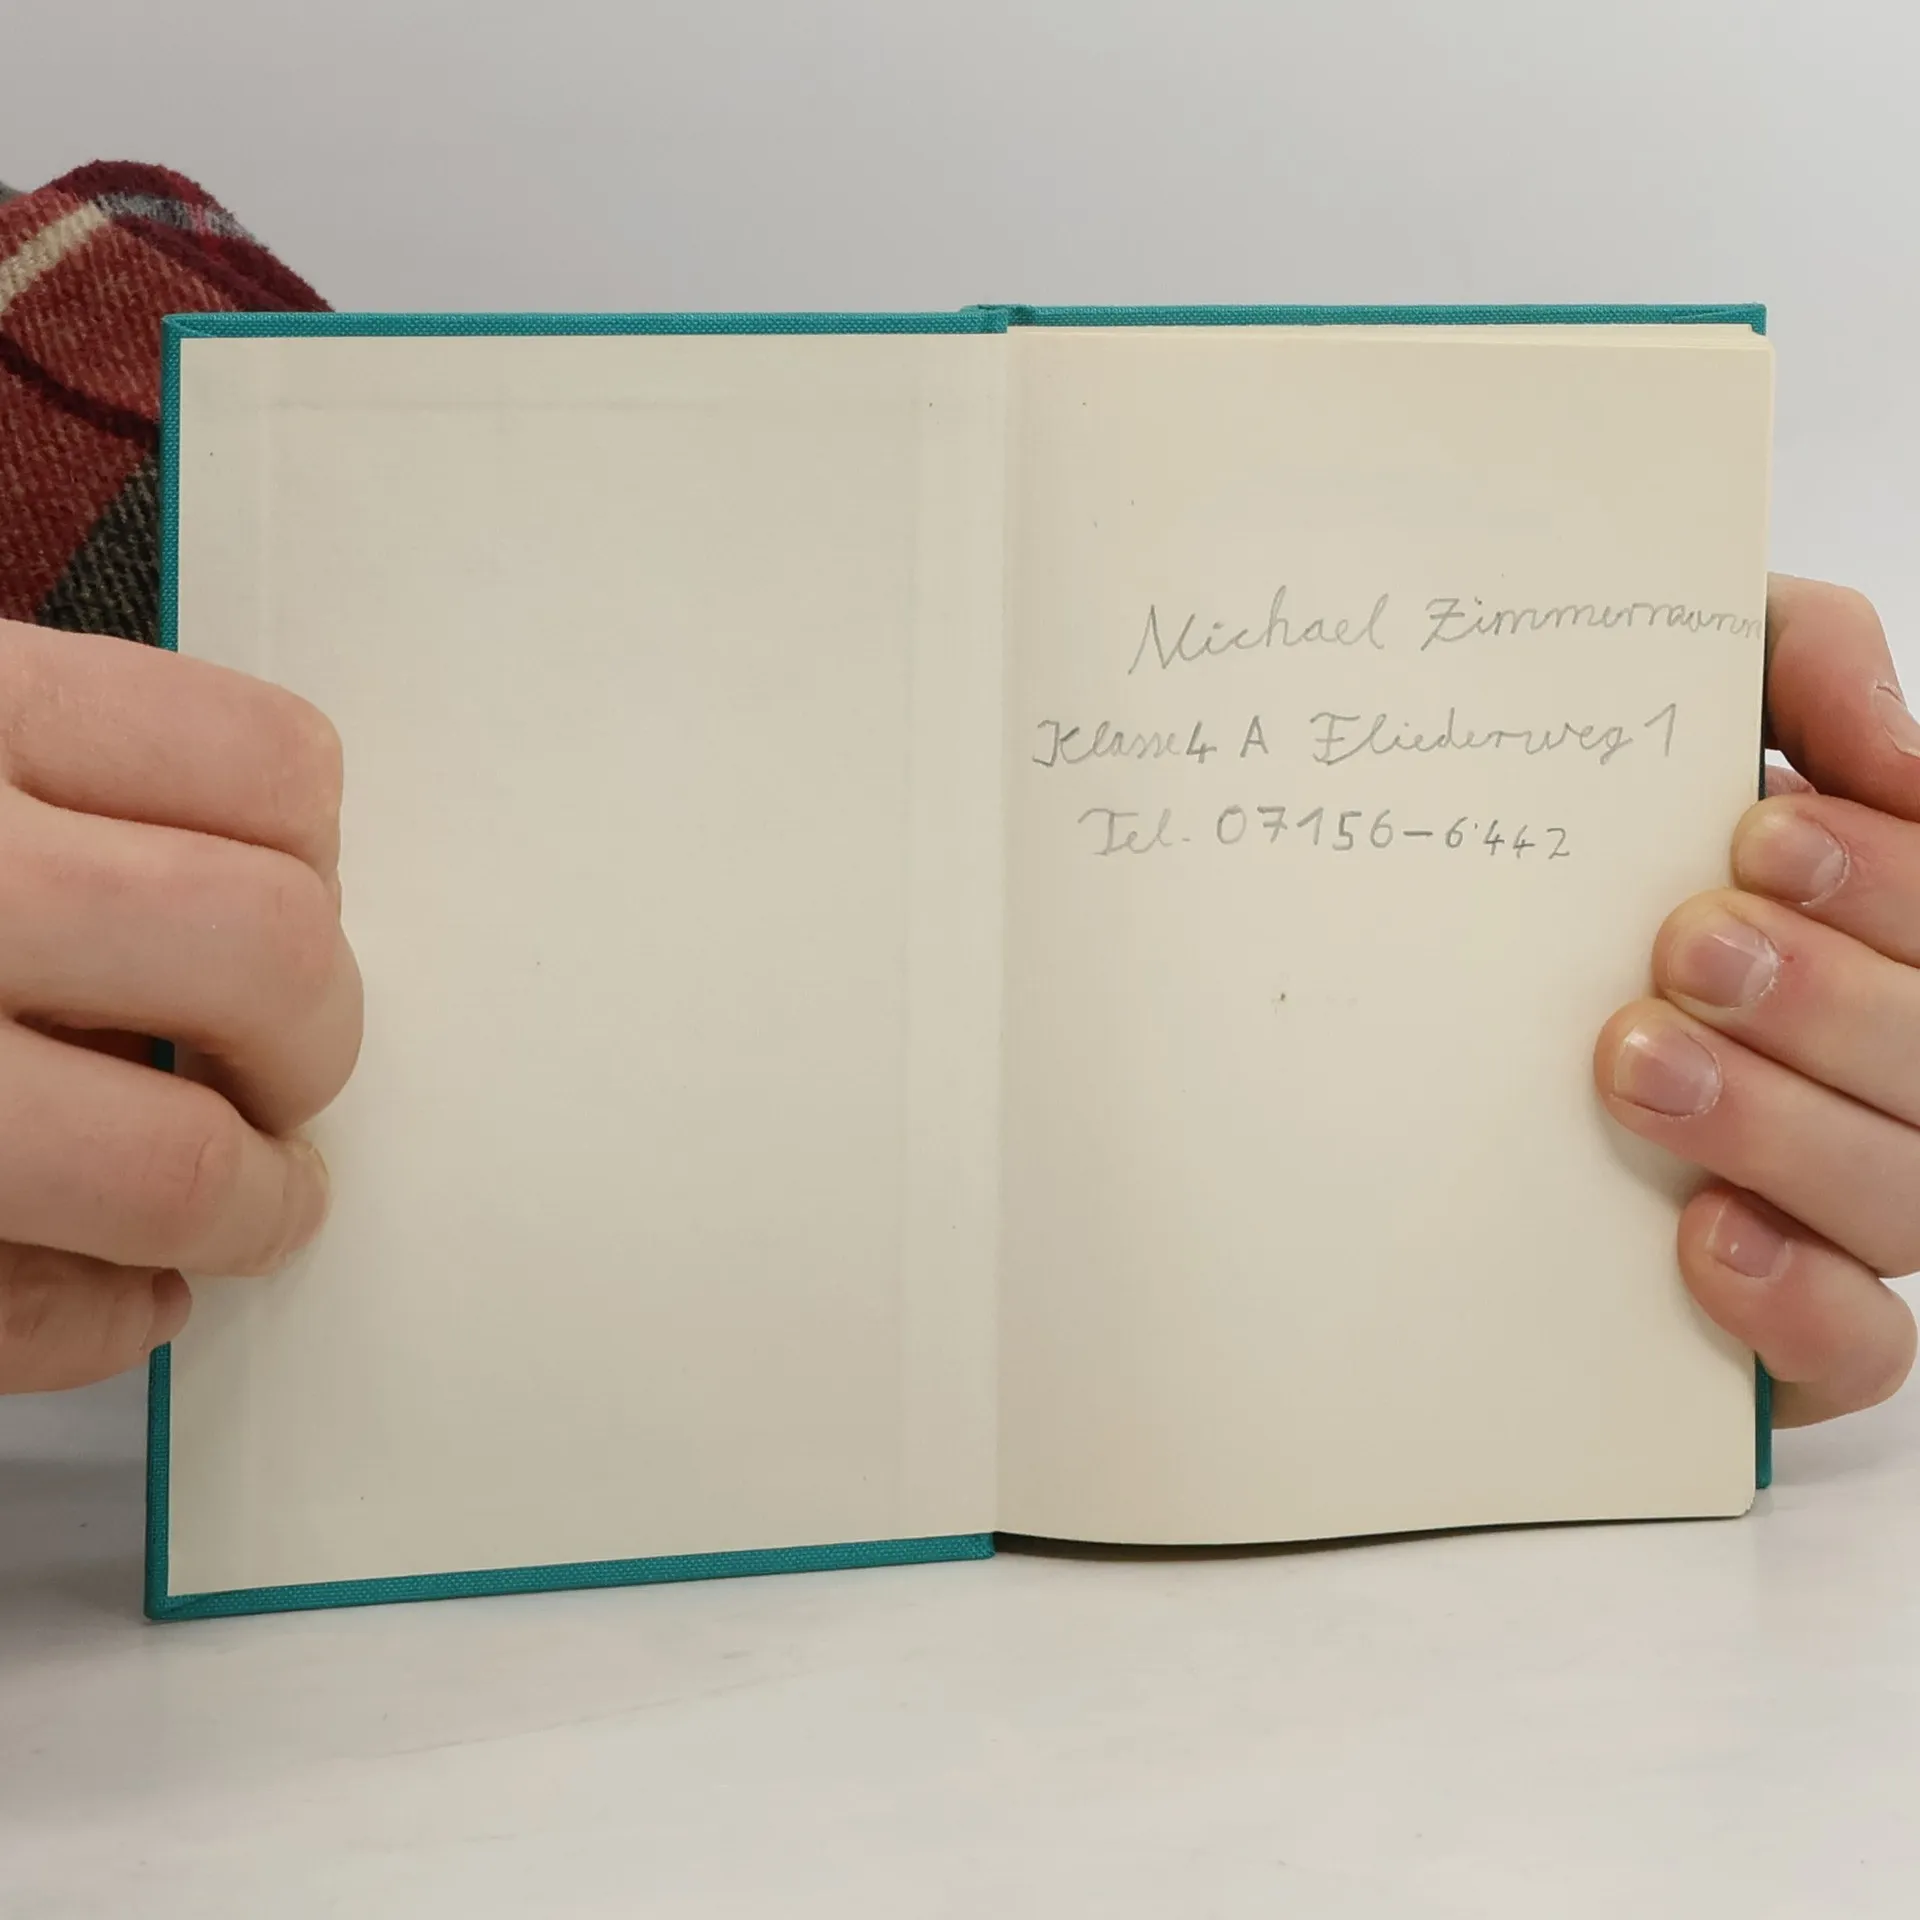 Michael Zimmermann
Klasse 4 A Fliederweg 1
Tel. 07156-6442